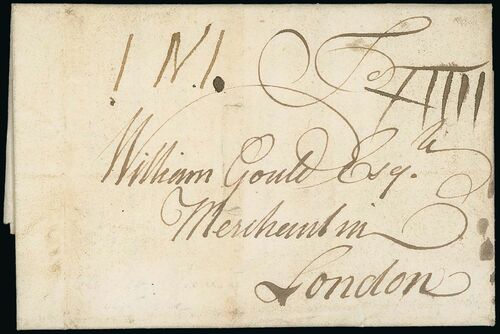 1 N 1.
To
William Gould Esqr.
Merchant in
London